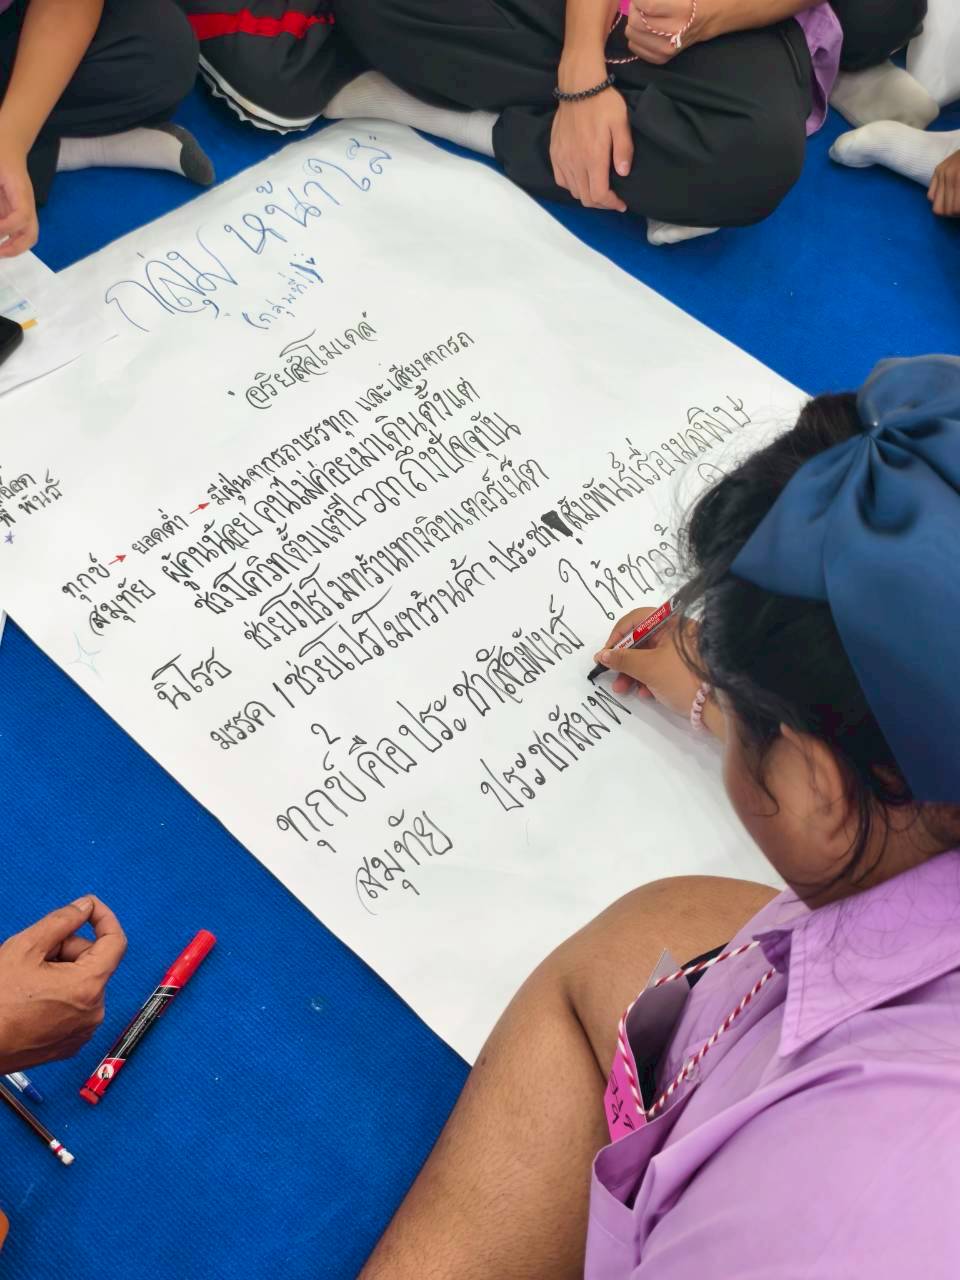 กลุ่ม หน้าใส
อริยสัจโมเดล
ทุกข์ → ยอดต่ำ → มีฝุ่นจากรถบรรทุก และเสียงจากรถ
สมุทัย ผู้คนน้อย คนไม่ค่อยมาเดินตั้งแต่
ช่วงโควิทตั้งแต่ปี ถึงปัจจุบัน
นิโรธ ช่วยโปรโมทร้านทางอินเตอร์เน็ต
มรรค 1 ช่วยโปรโมทร้านค้า ประชาสัมพันธ์เรื่องมลพิษ
2
ทุกข์ คือ ประชาสัมพันธ์ ให้ชาว
สมุทัย ประชาสัมพ
Whiteboard